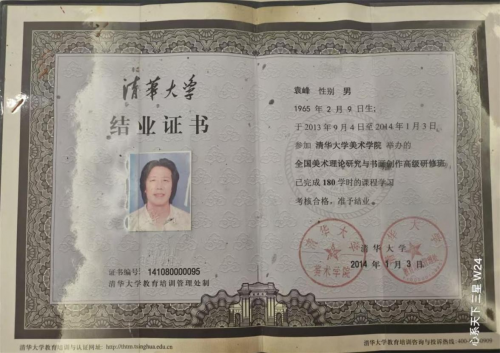 清华大学
结业证书
证书编号: 141080000095
清华大学教育培训管理处制
袁峰 性别 男
1965 年 2 月 9 日生,
于 2013 年 9 月 4 日至 2014 年 1 月 3 日,
参加 清华大学美术学院 举办的
全国美术理论研究与书画创作高级研修班
已完成 180 学时的课程学习
考核合格, 准予结业。
清华大学
2014 年 1 月 3 日
清华大学
美术学院
清华大学
清华大学教育培训与认证网址: http://thtm.tsinghua.edu.cn
清华大学教育培训咨询与投诉热线: 400-
心系天下 三星 W24